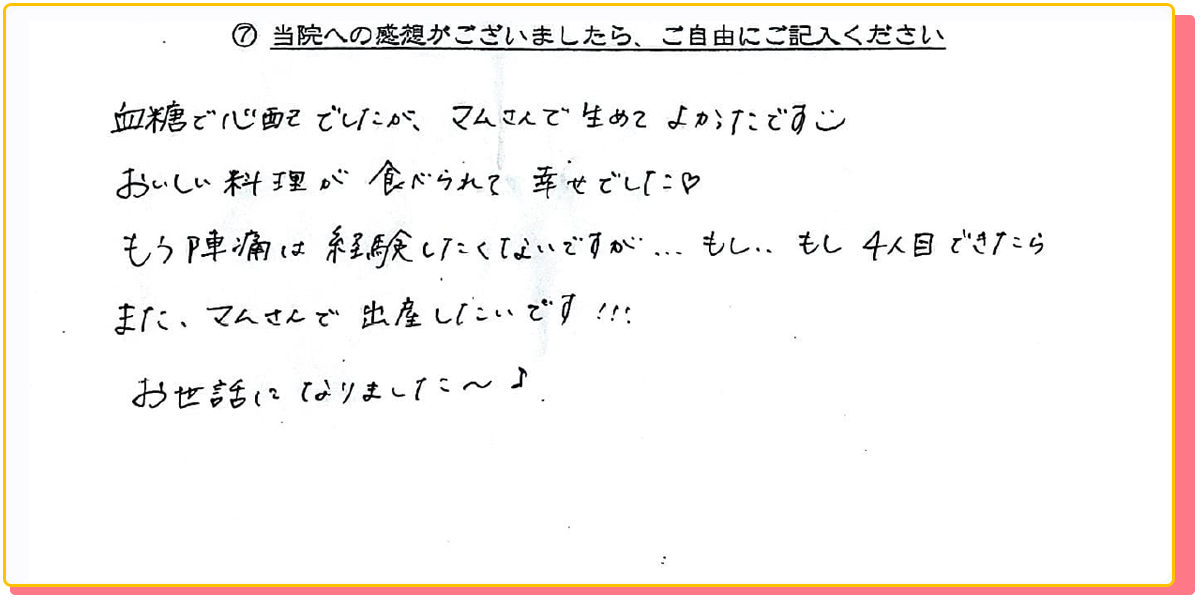 ⑦ 当院への感想がございましたら、ご自由にご記入ください
血糖で心配でしたが、マムさんで生めてよかったです
おいしい料理が食べられて幸せでした♡
もう陣痛は経験したくないですが…もし‥もし4人目できたら
また、マムさんで出産したいです!!!
お世話になりました〜♪